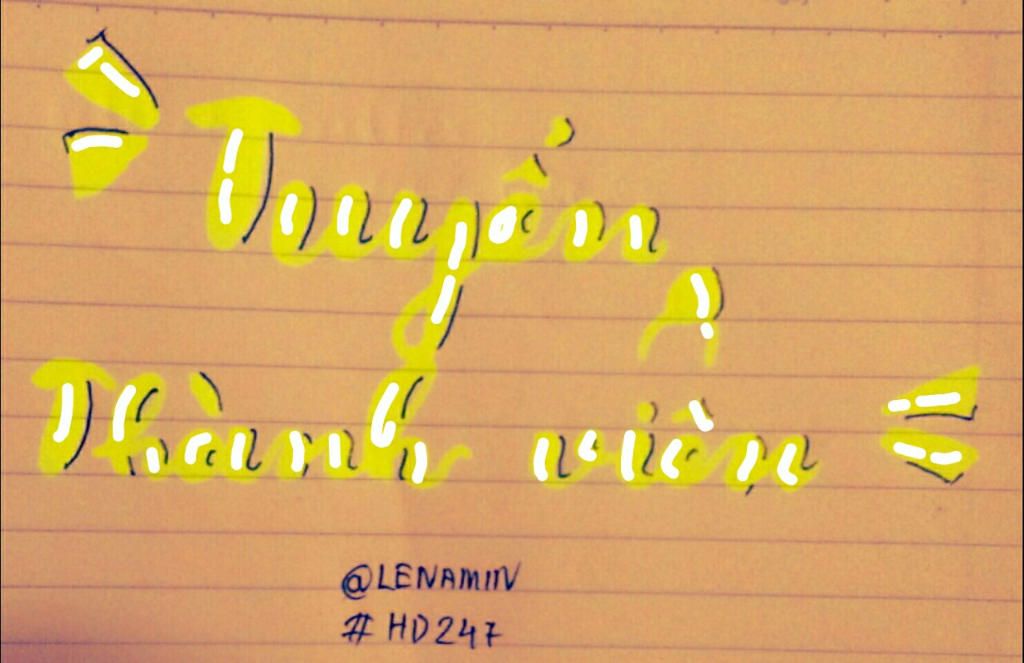 Tuyển
Thành viên
@LENAMIN
#HD247